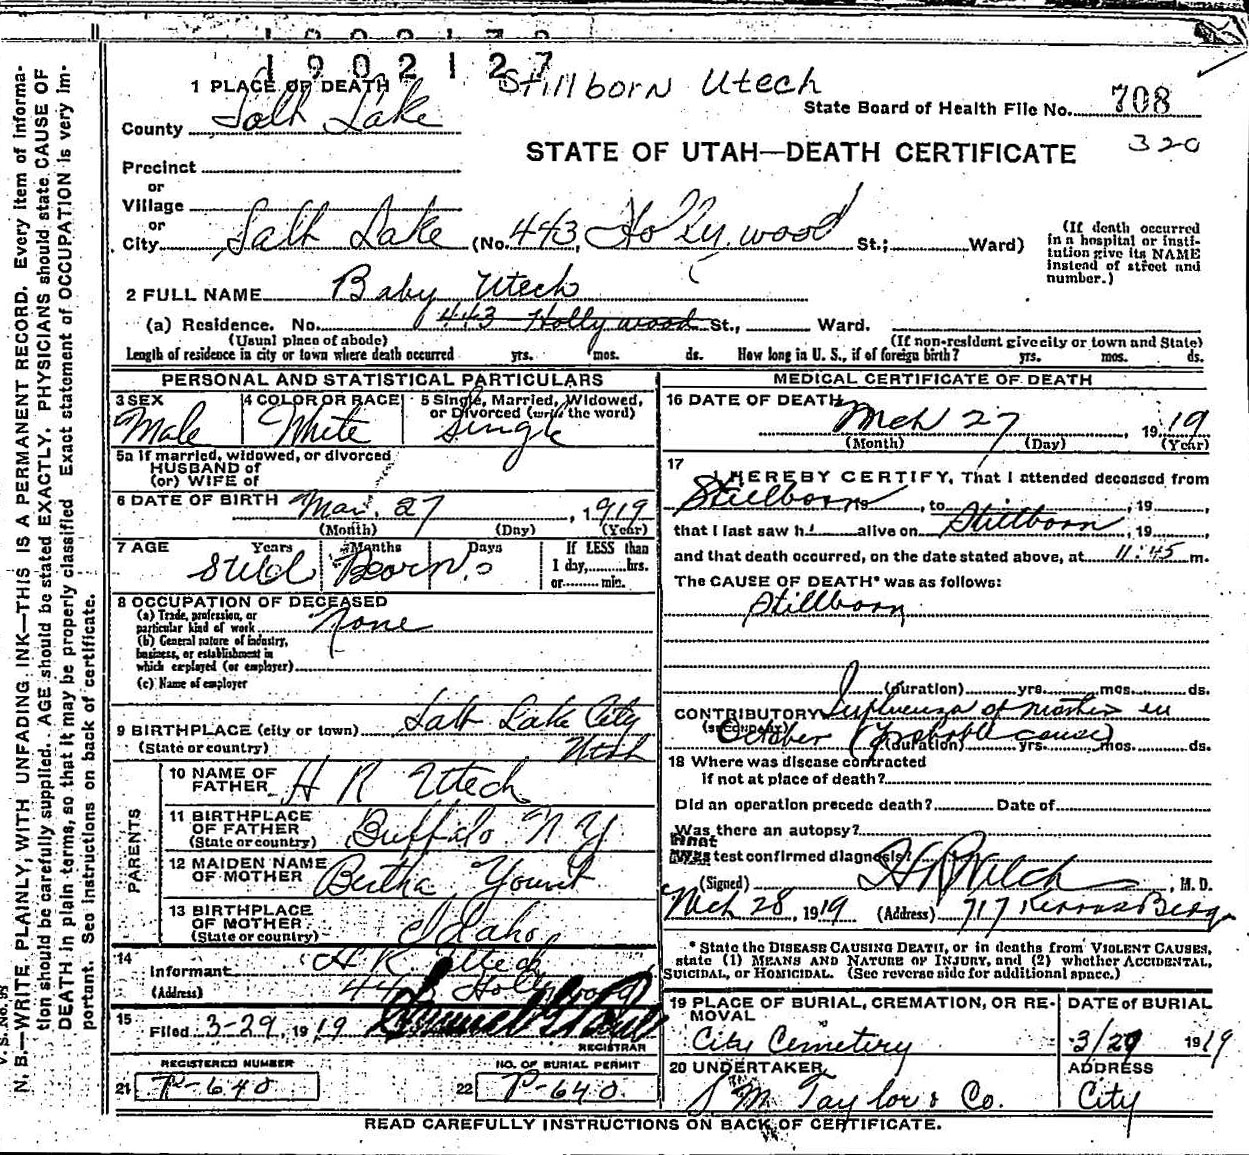 1902127
Stillborn Utech
1 PLACE OF DEATH
State Board of Health File No. 708
County Salt Lake
320
STATE OF UTAH—DEATH CERTIFICATE
Precinct
or
Village
or
City Salt Lake (No. 443, Hollywood St.; Ward)
(If death occurred in a hospital or insti-
tution give its NAME
instead of street and
number.)
2 FULL NAME Baby Utech
(a) Residence. No. 443 Hollywood St., Ward.
(Usual place of abode) (If non-resident give city or town and State)
Length of residence in city or town where death occurred yrs. mos. ds. How long in U. S., if of foreign birth? yrs. mos. ds.
PERSONAL AND STATISTICAL PARTICULARS
3 SEX 4 COLOR OR RACE 5 Single, Married, Widowed,
or Divorced (write the word)
Male White Single
5a If married, widowed, or divorced
HUSBAND of
(or) WIFE of
6 DATE OF BIRTH Mar. 27, 1919
(Month) (Day) (Year)
7 AGE Years Months Days If LESS than
1 day, hrs.
or min.
Still Born
8 OCCUPATION OF DECEASED
(a) Trade, profession, or
particular kind of work None
(b) General nature of industry,
business, or establishment in
which employed (or employer)
(c) Name of employer
9 BIRTHPLACE (city or town) Salt Lake City
(State or country) Utah
PARENTS
10 NAME OF
FATHER H R Utech
11 BIRTHPLACE
OF FATHER Buffalo N Y
(State or country)
12 MAIDEN NAME
OF MOTHER Bertha Yount
13 BIRTHPLACE
OF MOTHER
(State or country) Idaho
14
Informant H R Utech
(Address) 443 Hollywood
15
Filed 3-29, 1919
REGISTRAR
REGISTERED NUMBER NO. OF BURIAL PERMIT
21 P-640 22 P-640
MEDICAL CERTIFICATE OF DEATH
16 DATE OF DEATH
Mch 27, 1919
(Month) (Day) (Year)
17
I HEREBY CERTIFY, That I attended deceased from
Stillborn, 19, to, 19,
that I last saw h alive on Stillborn, 19,
and that death occurred, on the date stated above, at 11:45 m.
The CAUSE OF DEATH* was as follows:
Stillborn
(duration) yrs. mos. ds.
CONTRIBUTORY Influenza of mother in
(SECONDARY) October (Probable cause)
(duration) yrs. mos. ds.
18 Where was disease contracted
if not at place of death?
Did an operation precede death? Date of
Was there an autopsy?
What test confirmed diagnosis?
(Signed) , M. D.
Mch 28, 1919 (Address) 717 Kearns Bldg
* State the DISEASE CAUSING DEATH, or in deaths from VIOLENT CAUSES,
state (1) MEANS AND NATURE OF INJURY, and (2) whether ACCIDENTAL,
SUICIDAL, or HOMICIDAL. (See reverse side for additional space.)
19 PLACE OF BURIAL, CREMATION, OR RE-
MOVAL
City Cemetery
DATE of BURIAL
3/29 1919
20 UNDERTAKER
S M Taylor & Co.
ADDRESS
City
READ CAREFULLY INSTRUCTIONS ON BACK OF CERTIFICATE.
V. S. No. 95
N. B.—WRITE PLAINLY, WITH UNFADING INK—THIS IS A PERMANENT RECORD. Every item of informa-
tion should be carefully supplied. AGE should be stated EXACTLY. PHYSICIANS should state CAUSE OF
DEATH in plain terms, so that it may be properly classified. Exact statement of OCCUPATION is very im-
portant. See instructions on back of certificate.